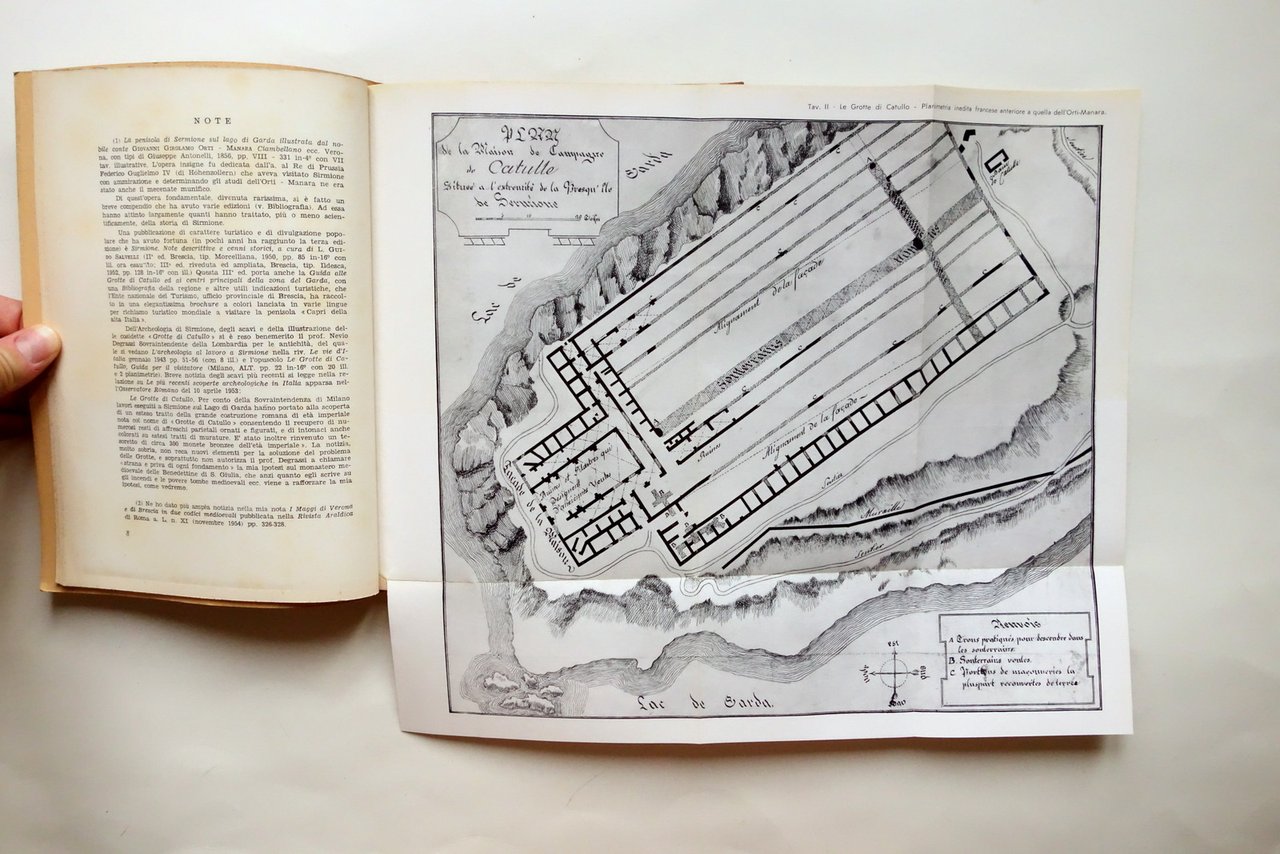 NOTE
(1) La penisola di Sirmione sul lago di Garda illustrata dal no-
bile conte GIOVANNI GIROLAMO ORTI - MANARA Ciambellano ecc. Vero-
na, con tipi di Giuseppe Antonelli, 1856, pp. VIII - 331 in-4º con VII
tav. illustrative. L'opera insigne fu dedicata dall'a. al Re di Prussia
Federico Guglielmo IV (di Hohenzollern) che aveva visitato Sirmione
con ammirazione e determinando gli studi dell'Orti - Manara ne era
stato anche il mecenate munifico.
Di quest'opera fondamentale, divenuta rarissima, si è fatto un
breve compendio che ha avuto varie edizioni (v. Bibliografia). Ad essa
hanno attinto largamente quanti hanno trattato, più o meno scien-
tificamente, della storia di Sirmione.
Una pubblicazione di carattere turistico e di divulgazione popo-
lare che ha avuto fortuna (in pochi anni ha raggiunto la terza edi-
zione) è Sirmione. Note descrittive e cenni storici, a cura di L. GUI-
DO SALVELLI (IIª ed. Brescia, tip. Morcelliana, 1950, pp. 85 in-16º con
ill. ora IIIª ed. riveduta ed ampliata, Brescia, tip. Ildesca,
1952, pp. 128 in-16º con ill.) Questa IIIª ed. porta anche la Guida alle
Grotte di Catullo ed ai centri principali della zona del Garda, con
una Bibliografia della regione e altre utili indicazioni turistiche, che
l'Ente nazionale del Turismo, ufficio provinciale di Brescia, ha raccol-
to in una elegantissima brochure a colori lanciata in varie lingue
per richiamo turistico mondiale a visitare la penisola « Capri della
alta Italia ».
Dell'Archeologia di Sirmione, degli scavi e della illustrazione del-
le cosidette « Grotte di Catullo » si è reso benemerito il prof. Nevio
Degrassi Sovraintendente della Lombardia per le antichità, del qua-
le si vedano L'archeologia al lavoro a Sirmione nella riv. Le vie d'I-
talia gennaio 1943 pp. 51-56 (con 8 ill.) e l'opuscolo Le Grotte di Ca-
tullo, Guida per il visitatore (Milano, ALT. pp. 22 in-16º con 20 ill.
e 2 planimetrie). Breve notizia degli scavi più recenti si legge nella re-
lazione su Le più recenti scoperte archeologiche in Italia apparsa nel-
l'Osservatore Romano del 10 aprile 1953:
Le Grotte di Catullo. Per conto della Sovraintendenza di Milano
lavori eseguiti a Sirmione sul Lago di Garda hanno portato alla scoperta
di un esteso tratto della grande costruzione romana di età imperiale
nota col nome di « Grotte di Catullo » consentendo il recupero di nu-
merosi resti di affreschi parietali ornati e figurati, e di intonaci anche
colorati su estesi tratti di murature. E' stato inoltre rinvenuto un te-
soretto di circa 300 monete bronzee dell'età imperiale ». La notizia,
molto sobria, non reca nuovi elementi per la soluzione del problema
delle Grotte, e soprattutto non autorizza il prof. Degrassi a chiamare
« strana e priva di ogni fondamento » la mia ipotesi sul monastero me-
dioevale delle Benedettine di S. Giulia, che anzi quanto egli scrive su
gli incendi e le povere tombe medioevali ecc. viene a rafforzare la mia
ipotesi, come vedremo.
(2) Ne ho dato più ampia notizia nella mia nota I Mappi di Verona
e di Brescia in due codici medioevali pubblicata nella Rivista Araldica
di Roma a. L. n. XI (novembre 1954) pp. 326-328.
8
Tav. II - Le Grotte di Catullo - Planimetria inedita francese anteriore a quella dell'Orti-Manara.
PLAN
de la Maison de Campagne
de Catulle
Situeé a l'extremité de la Presqu' Ile
de Sermione
Lac de Garda
Alignament de la façade
Souterrains
Alignament de la façade
Ruines
Ruines et Platres qui
désignent
d'anciennes Voutes
Façade de la Maison
Sentier
Muraille
Sentier
Sentier
Lac de Garda.
EST
SUD
Renvois
A Trous pratiqués pour descendre dans
les souterrains.
B. Souterrains voutés.
C Portions de maçonneries la
pluspart recouvertes de terres